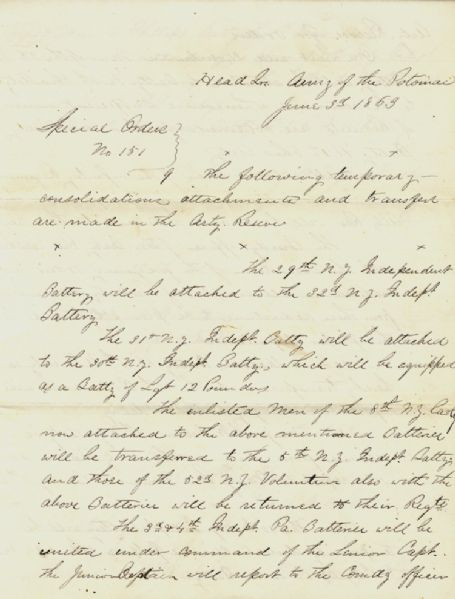 Head Qrs. Army of the Potomac
June 3d 1863
Special Orders }
No 151
x x
9 The following temporary
consolidations attachments and transfers
are made in the Arty. Reserve
x x
The 29th N.Y. Independent
Battery will be attached to the 32d N.Y. Indept.
Battery
The 31st N.Y. Indept. Batty will be attached
to the 30th N.Y. Indept. Batty., which will be equipped
as a Batty of Lgt 12 Pounders
The enlisted men of the 8th N.Y. Cavy
now attached to the above mentioned Batteries
will be transferred to the 5th N.Y. Indept. Batty,
and those of the 52d N.Y. Volunteers also with the
above Batteries will be returned to their Regts
The 3d & 4th Indept. Pa. Batteries will be
united under command of the Senior Capt.
the Junior Captain will report to the Comdg officer